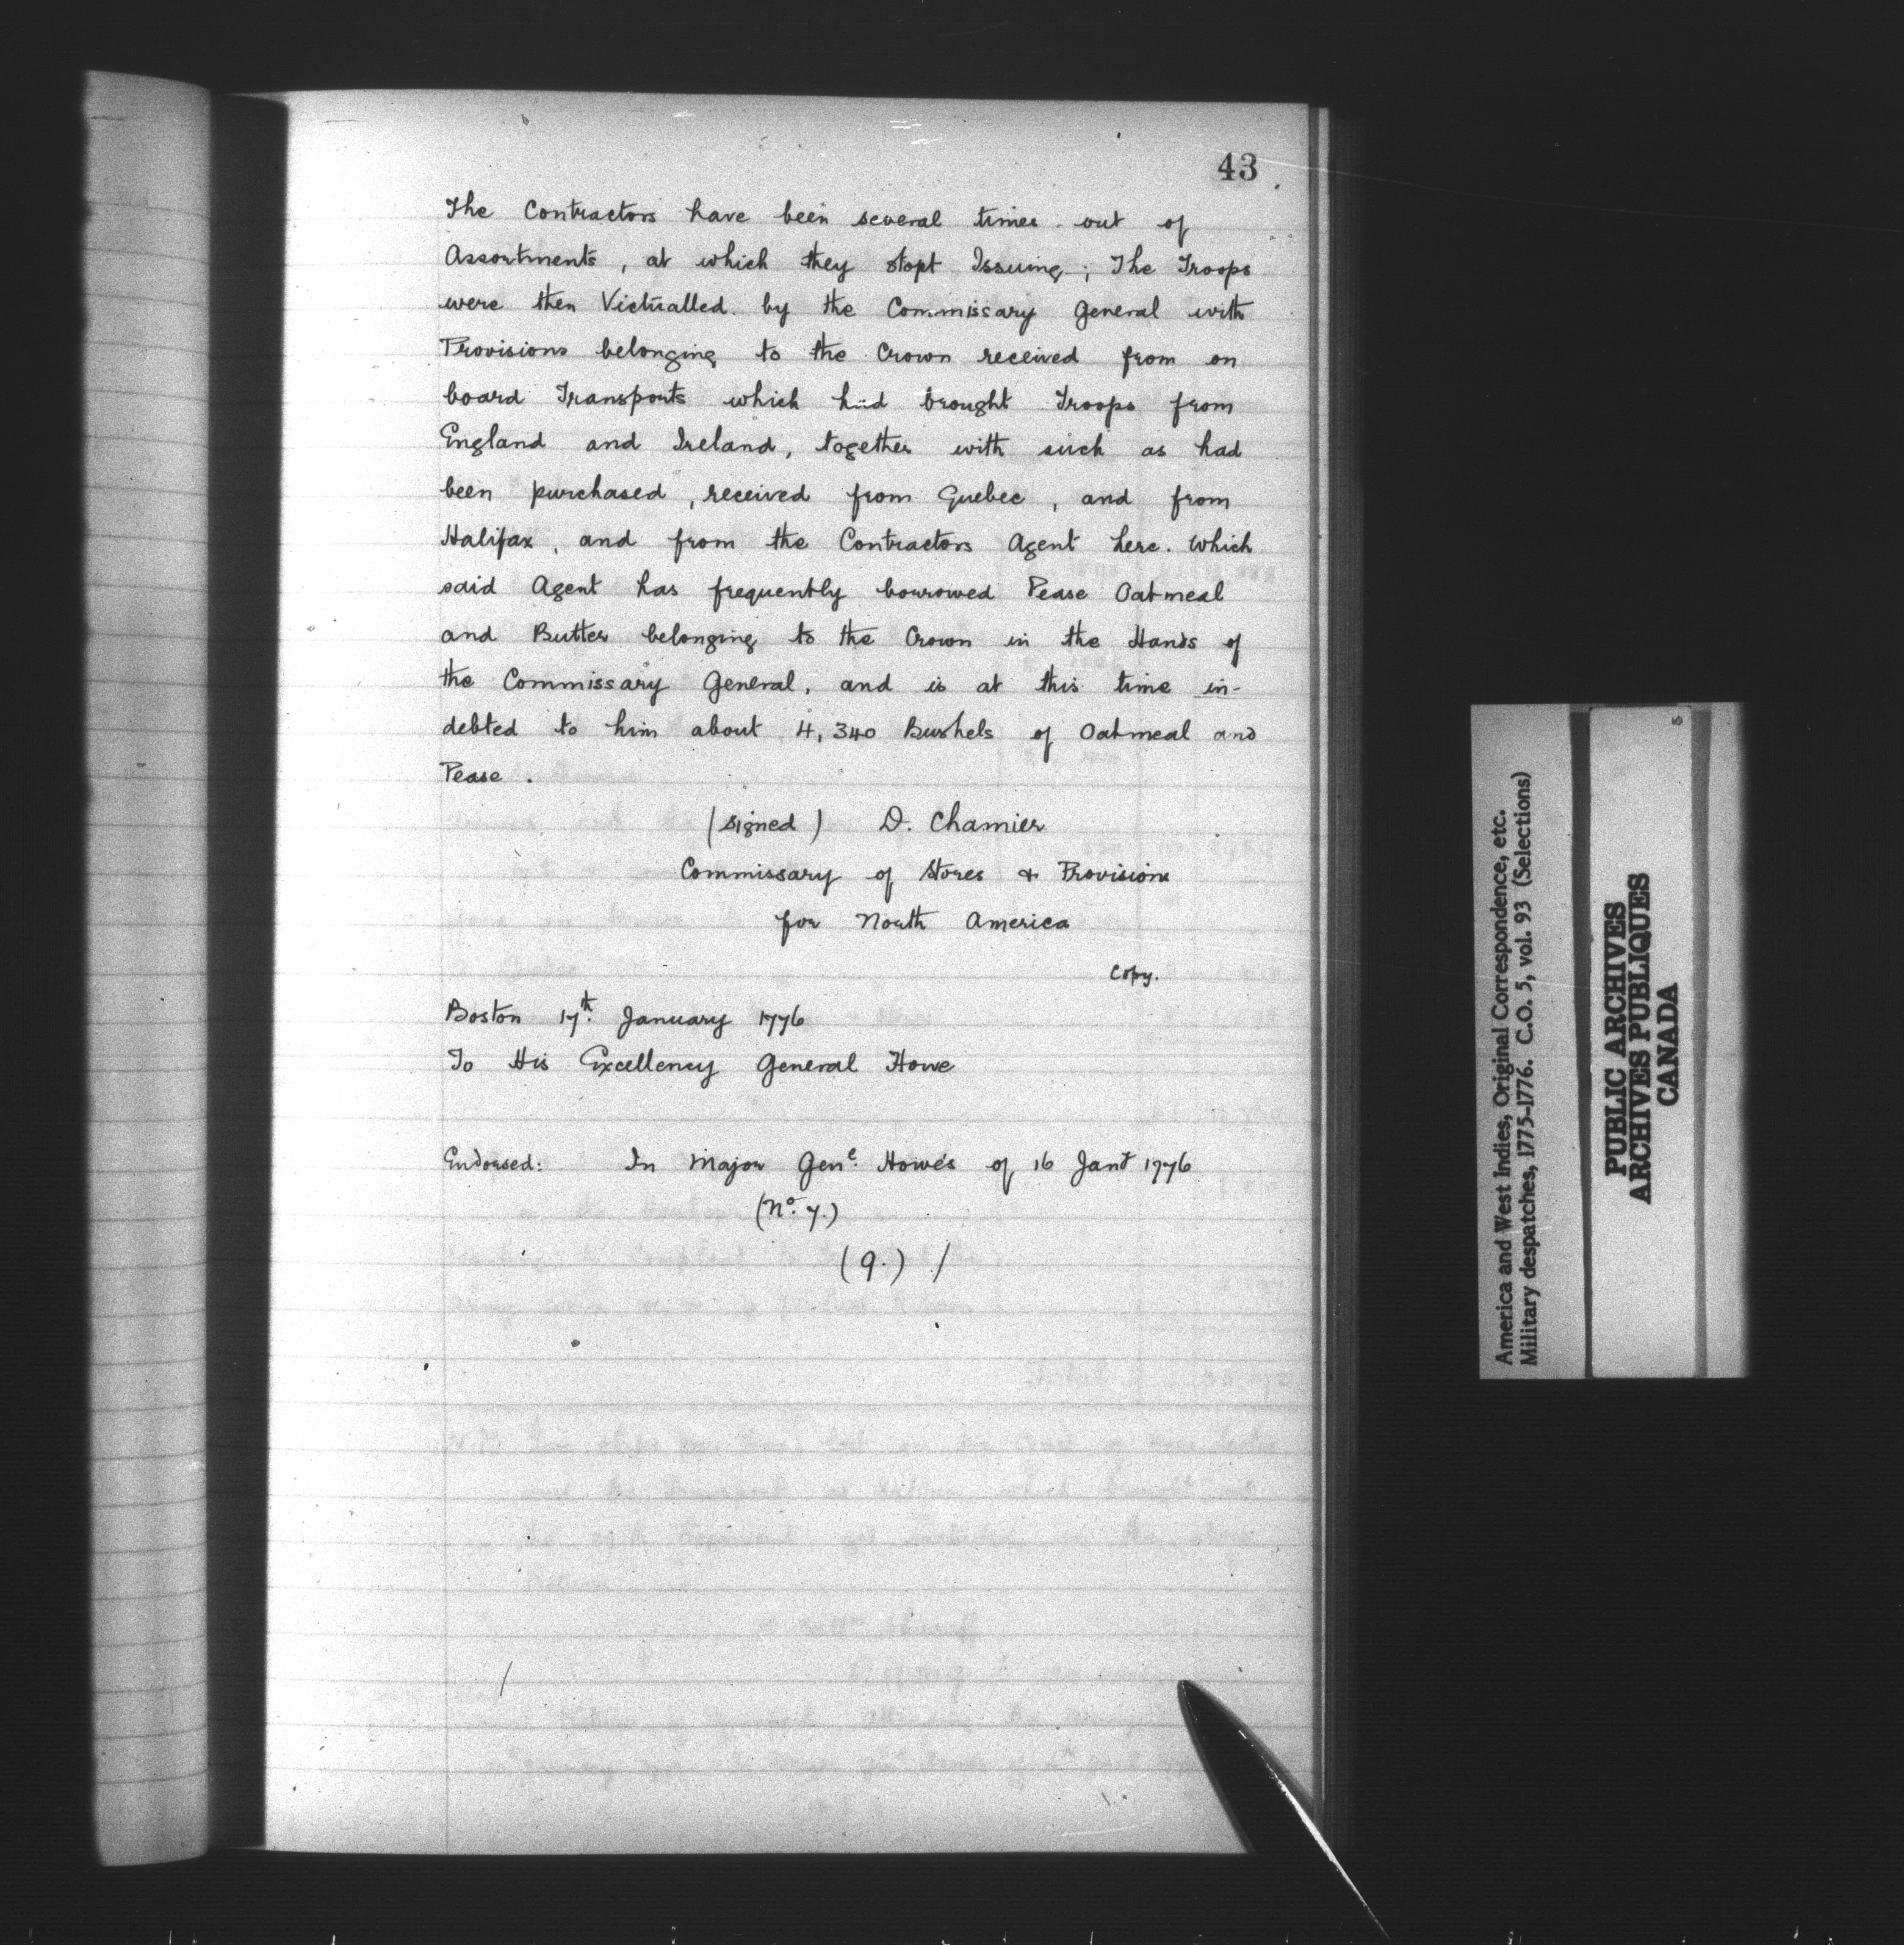 43
The Contractors have been several times out of
Assortments, at which they stopt Issuing; The Troops
were then Victualled by the Commissary General with
Provisions belonging to the Crown received from on
board Transports which had brought Troops from
England and Ireland, together with such as had
been purchased, received from Quebec, and from
Halifax, and from the Contractors Agent here. Which
said Agent has frequently borrowed Pease Oatmeal
and Butter belonging to the Crown in the Hands of
the Commissary General, and is at this time in-
debted to him about 4,340 Bushels of Oatmeal and
Pease.
(signed) D. Chamier
Commissary of Stores & Provisions
for North America
Copy.
Boston 17th. January 1776
To His Excellency General Howe
Endorsed: In Major Genl. Howe's of 16 Jany 1776
(No. 7.)
(9.) /
America and West Indies, Original Correspondence, etc.
Military despatches, 1775-1776. C.O. 5, vol. 93 (Selections)
PUBLIC ARCHIVES
ARCHIVES PUBLIQUES
CANADA